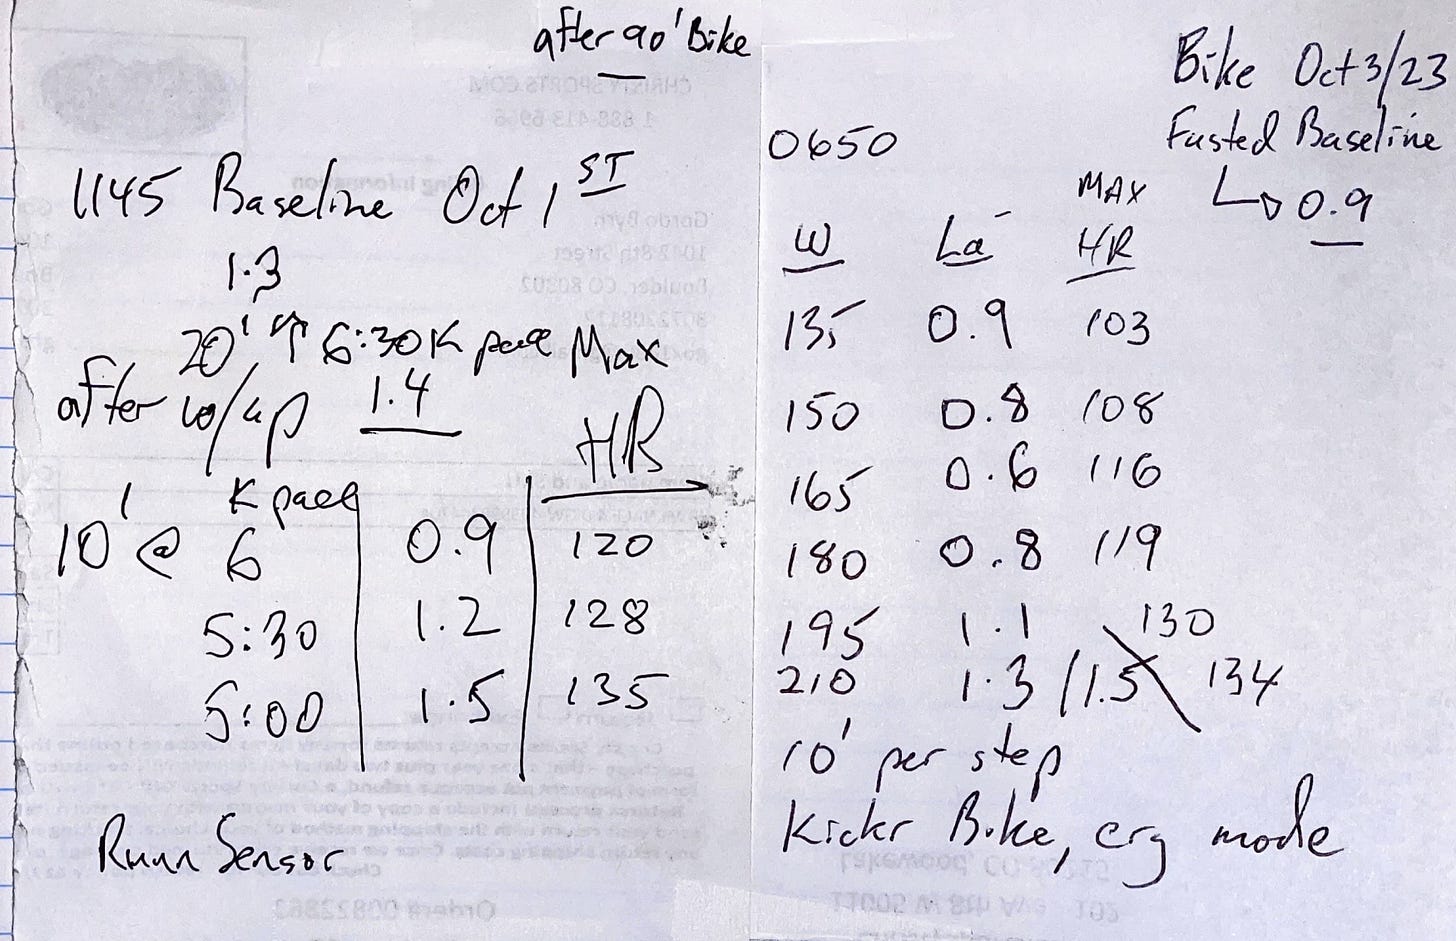 after 90' Bike
1145 Baseline Oct 1ST
1.3
20' ↑ 6:30K pace Max
after w/up 1.4
HR
K pace
10' @ 6 0.9 120
5:30 1.2 128
5:00 1.5 135
Runn Sensor
Bike Oct 3/23
Fasted Baseline
↳ 0.9
0650
W La⁻ MAX HR
135 0.9 103
150 0.8 108
165 0.6 116
180 0.8 119
195 1.1 130
210 1.3/1.5 134
10' per step
Kickr Bike, erg mode